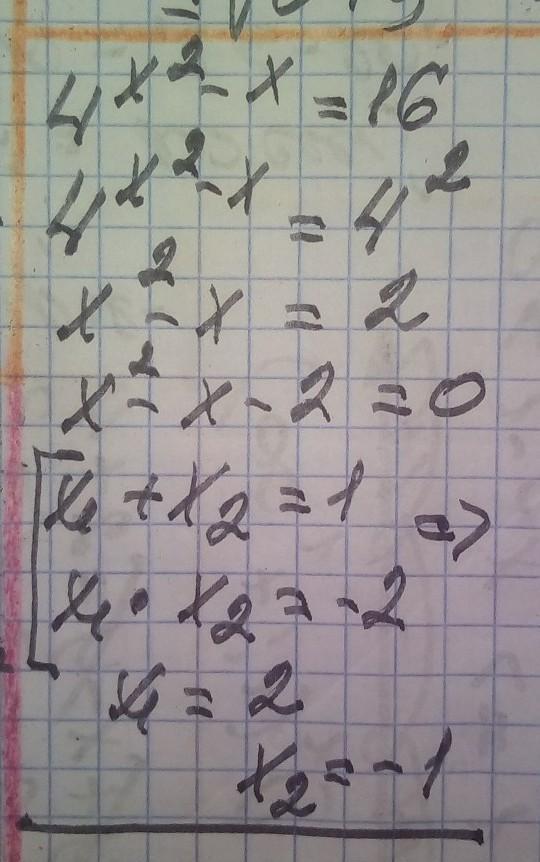 4^(x²-x) = 16
4^(x²-x) = 4²
x² - x = 2
x² - x - 2 = 0
[x₁ + x₂ = 1 =>
x₁ · x₂ = -2
x₁ = 2
x₂ = -1